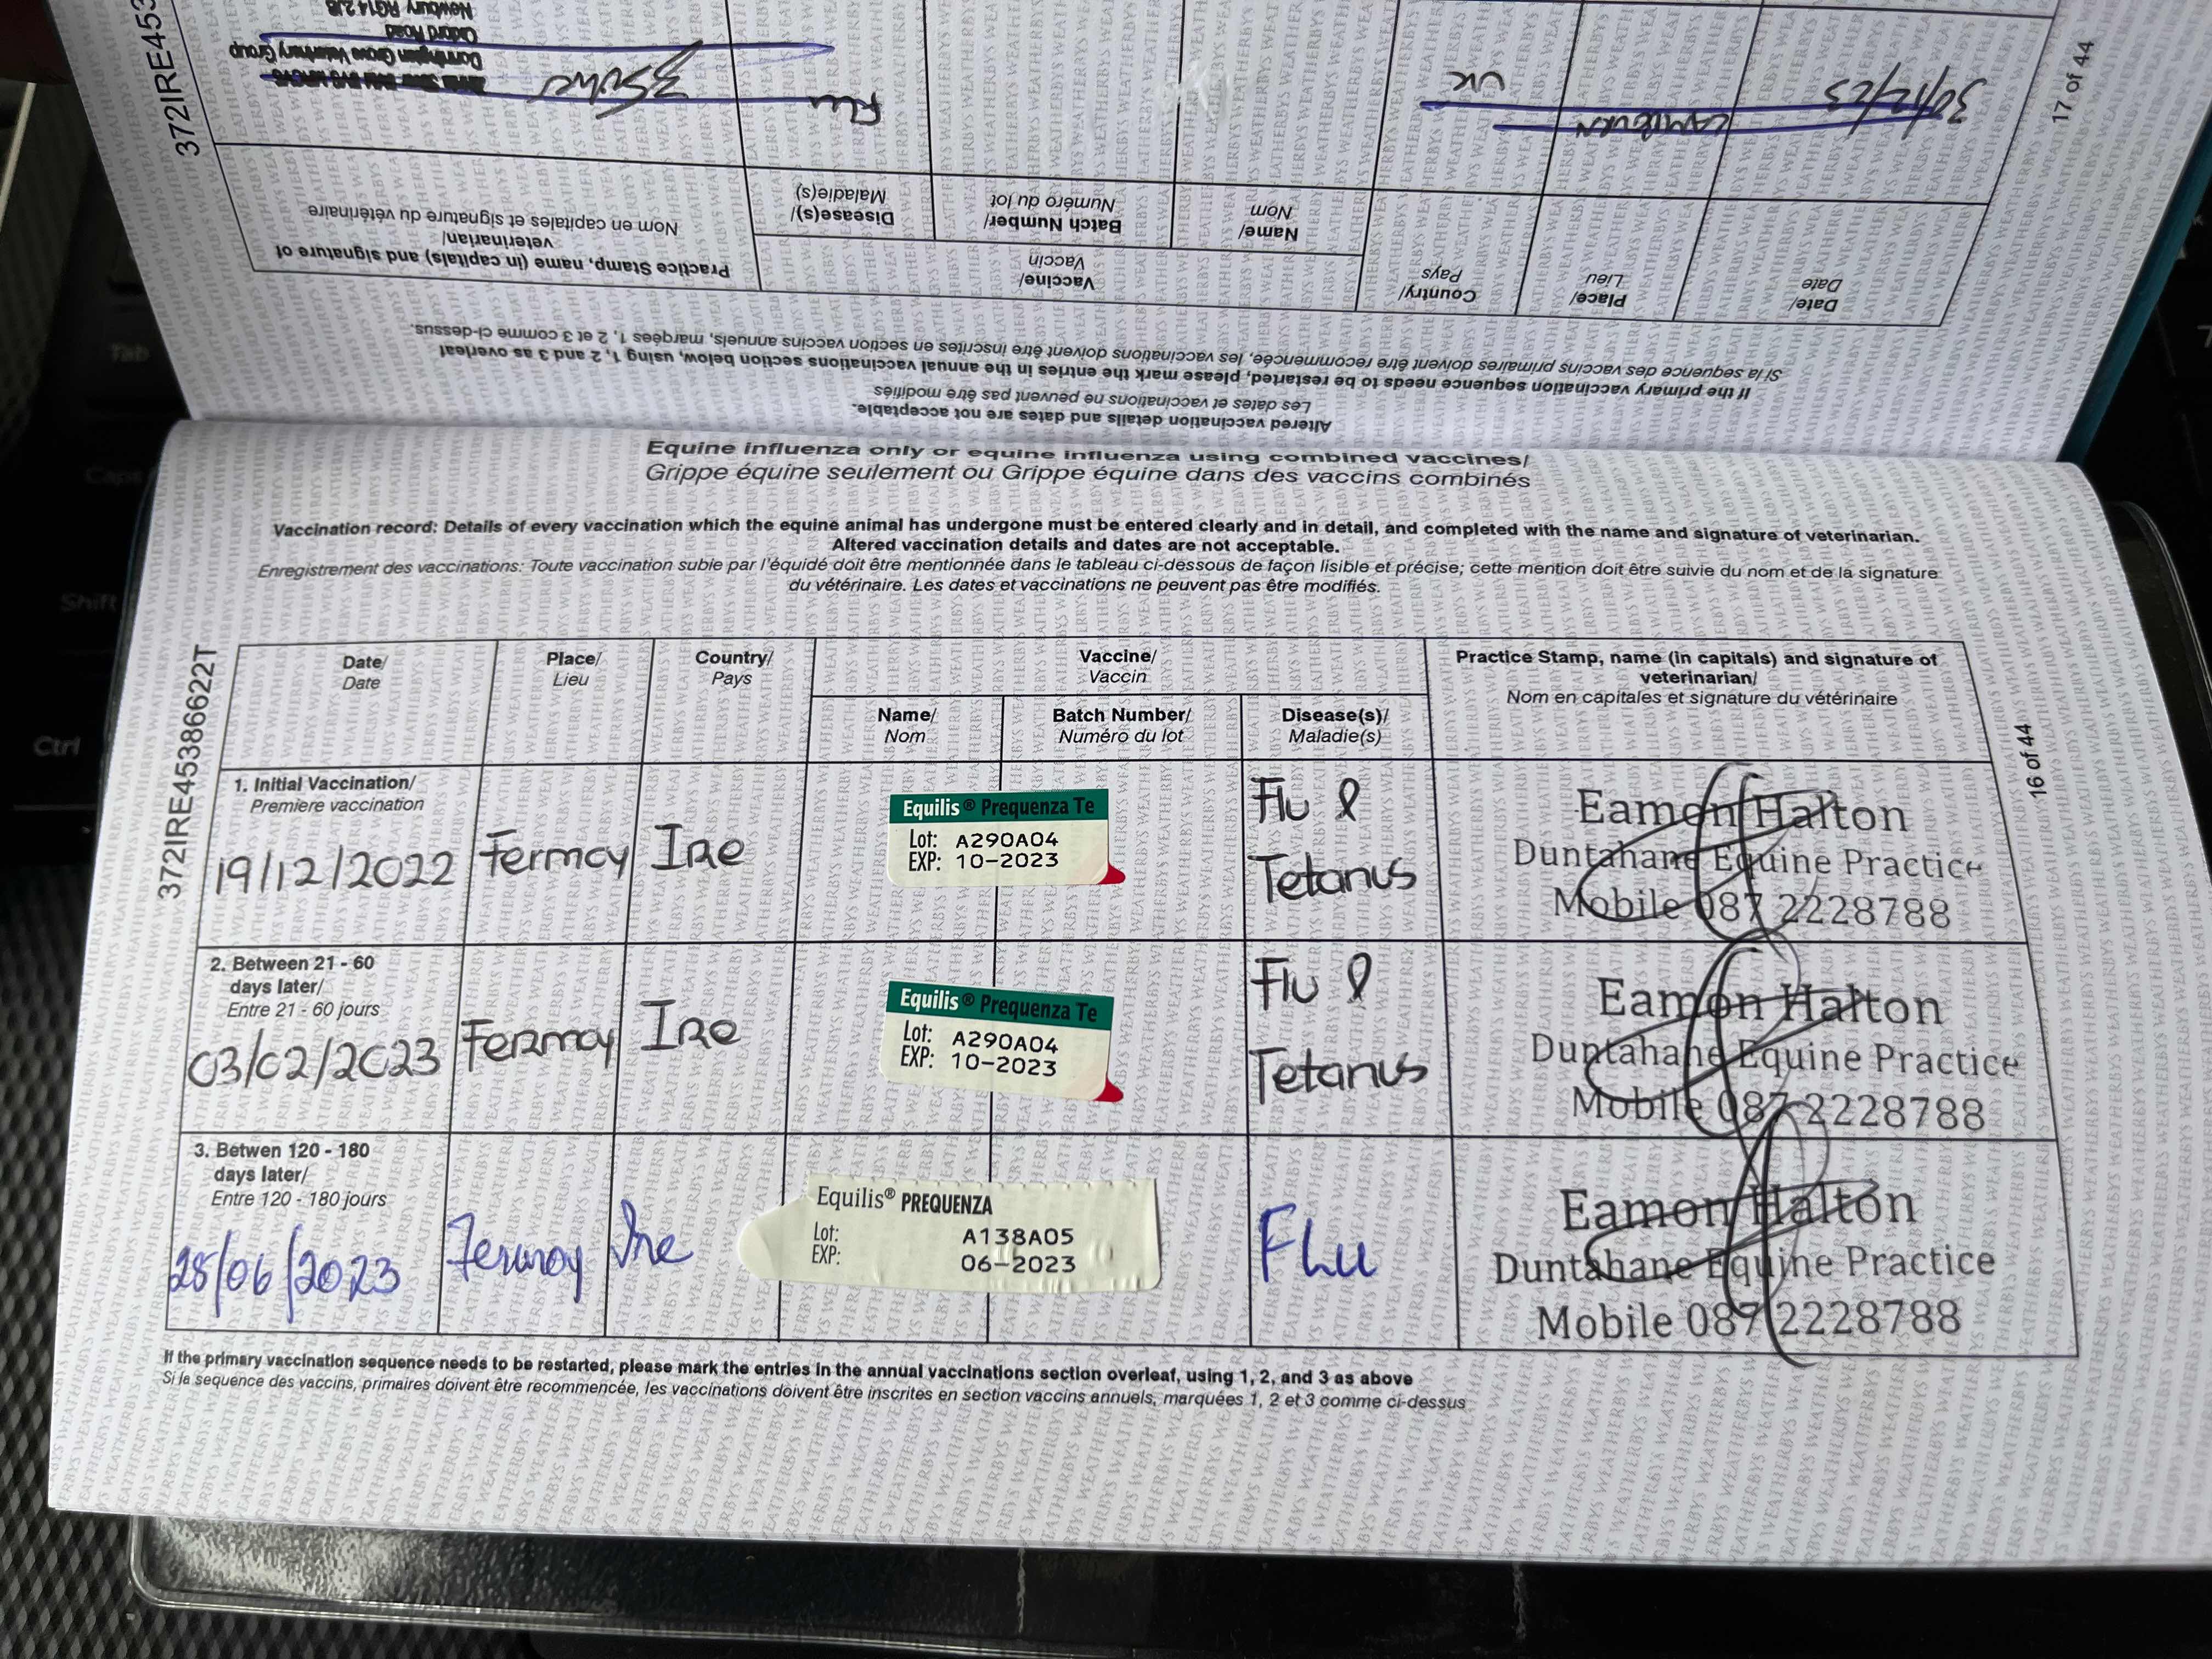 Equine influenza only or equine influenza using combined vaccines/
Grippe équine seulement ou Grippe équine dans des vaccins combinés
Vaccination record: Details of every vaccination which the equine animal has undergone must be entered clearly and in detail, and completed with the name and signature of veterinarian.
Altered vaccination details and dates are not acceptable.
Enregistrement des vaccinations: Toute vaccination subie par l'équidé doit être mentionnée dans le tableau ci-dessous de façon lisible et précise; cette mention doit être suivie du nom et de la signature
du vétérinaire. Les dates et vaccinations ne peuvent pas être modifiés.
372IRE45386622T
16 of 44
Date/
Date
Place/
Lieu
Country/
Pays
Vaccine/
Vaccin
Name/
Nom
Batch Number/
Numéro du lot
Disease(s)/
Maladie(s)
Practice Stamp, name (in capitals) and signature of
veterinarian/
Nom en capitales et signature du vétérinaire
1. Initial Vaccination/
Premiere vaccination
19/12/2022
Fermoy
Ire
Equilis® Prequenza Te
Lot: A290A04
EXP: 10-2023
Flu &
Tetanus
Eamon Halton
Duntahane Equine Practice
Mobile 087 2228788
2. Between 21 - 60
days later/
Entre 21 - 60 jours
03/02/2023
Fermoy
Ire
Equilis® Prequenza Te
Lot: A290A04
EXP: 10-2023
Flu &
Tetanus
Eamon Halton
Duntahane Equine Practice
Mobile 087 2228788
3. Betwen 120 - 180
days later/
Entre 120 - 180 jours
28/06/2023
Fermoy
Ire
Equilis® PREQUENZA
Lot: A138A05
EXP: 06-2023
Flu
Eamon Halton
Duntahane Equine Practice
Mobile 087 2228788
If the primary vaccination sequence needs to be restarted, please mark the entries in the annual vaccinations section overleaf, using 1, 2, and 3 as above
Si la sequence des vaccins, primaires doivent être recommencée, les vaccinations doivent être inscrites en section vaccins annuels, marquées 1, 2 et 3 comme ci-dessus
Altered vaccination details and dates are not acceptable.
Les dates et vaccinations ne peuvent pas être modifiés
If the primary vaccination sequence needs to be restarted, please mark the entries in the annual vaccinations section below, using 1, 2 and 3 as overleaf
Si la sequence des vaccins primaires doivent être recommencée, les vaccinations doivent être inscrites en section vaccins annuels, marqées 1, 2 et 3 comme ci-dessus.
Date/
Date
Place/
Lieu
Country/
Pays
Vaccine/
Vaccin
Name/
Nom
Batch Number/
Numéro du lot
Disease(s)/
Maladie(s)
Practice Stamp, name (in capitals) and signature of
veterinarian/
Nom en capitales et signature du vétérinaire
30/12/23
LAMBOURN
UK
Flu
Donnington Grove Veterinary Group
Oxford Road
Newbury RG14 2JB
17 of 44
372IRE453
Tab
Caps
Shift
Ctrl